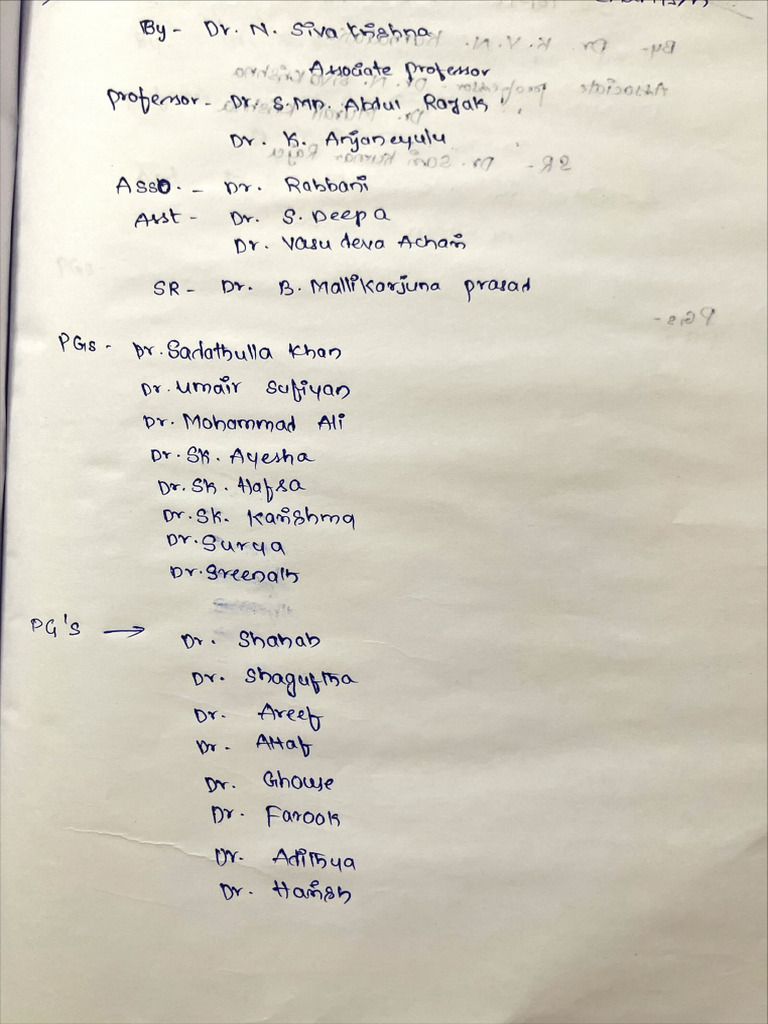 By - Dr. N. Siva Krishna
Associate professor
professor - Dr. S. MD. Abdul Razak
Dr. K. Anjaneyulu
Asso. - Dr. Rabbani
Asst - Dr. S. Deepa
Dr. Vasudeva Achari
SR - Dr. B. Mallikarjuna prasad
PGs - Dr. Sadathulla Khan
Dr. Umair Sufiyan
Dr. Mohammad Ali
Dr. SK. Ayesha
Dr. SK. Hafsa
Dr. SK. Karishma
Dr. Surya
Dr. Sreenath
PG's → Dr. Shahab
Dr. Shaguftha
Dr. Areef
Dr. Altaf
Dr. Ghouse
Dr. Farook
Dr. Adithya
Dr. Harish